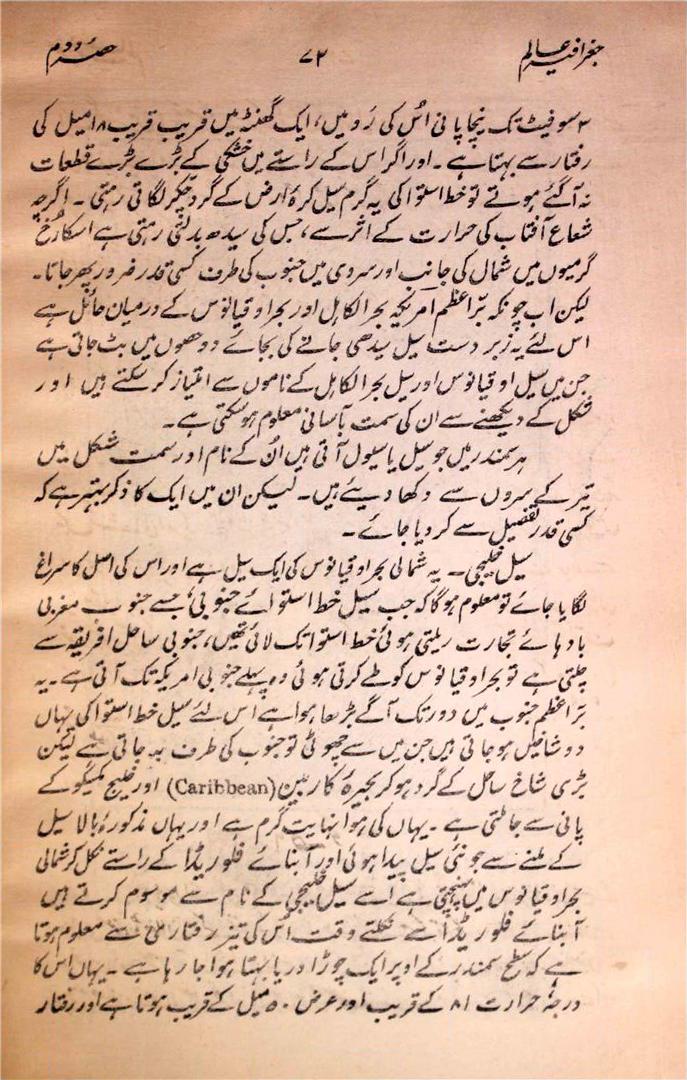 جغرافیہ عالم ۷۲ حصہ دوم
۳ سو فیٹ تک نیچا پانی اُس کی رَو میں، ایک گھنٹہ میں قریب قریب ۱۸میل کی
رفتار سے بہتا ہے۔ اور اگر اس کے راستے میں خشکی کے بڑے بڑے قطعات
نہ آگئے ہوتے تو خط استوا کی یہ گرم سیل کرۂ ارض کے گرد چکر لگاتی رہتی۔ اگرچہ
شعاع آفتاب کی حرارت کے اثر سے، جس کی سیدھ بدلتی رہتی ہے اسکا رُخ
گرمیوں میں شمال کی جانب اور سردی میں جنوب کی طرف کسی قدر ضرور پھر جاتا۔
لیکن اب چونکہ برّاعظم امریکہ بحرالکاہل اور بحر اوقیانوس کے درمیان حائل ہے
اس لئے یہ زبردست سیل سیدھی جانے کی بجائے دو حصوں میں بٹ جاتی ہے
جن میں سیل اوقیانوس اور سیل بحرالکاہل کے ناموں سے امتیاز کر سکتے ہیں اور
شکل کے دیکھنے سے ان کی سمت بآسانی معلوم ہو سکتی ہے۔
ہر سمندر میں جو سیل یا سیول آتی ہیں اُن کے نام اور سمت شکل میں
تیر کے سروں سے دکھا دیئے ہیں۔ لیکن ان میں ایک کا ذکر بہتر ہے کہ
کسی قدر تفصیل سے کر دیا جائے۔
سیل خلیجی۔ یہ شمالی بحر اوقیانوس کی ایک سیل ہے اور اس کی اصل کا سراغ
لگایا جائے تو معلوم ہوگا کہ جب سیل خط استوائے جنوبی، جسے جنوب مغربی
بادہائے تجارت ریلتی ہوئی خط استوا تک لائی تھیں، جنوبی ساحل افریقہ سے
چلتی ہے تو بحر اوقیانوس کو طے کرتی ہوئی وہ پہلے جنوبی امریکہ تک آتی ہے۔ یہ
برّاعظم جنوب میں دور تک آگے بڑھا ہوا ہے اس لئے سیل خط استوا کی یہاں
دو شاخیں ہو جاتی ہیں جن میں سے چھوٹی تو جنوب کی طرف بہ جاتی ہے لیکن
بڑی شاخ ساحل کے گرد ہو کر بحیرۂ کاربین (Caribbean) اور خلیج مکسیکو کے
پانی سے جا ملتی ہے۔ یہاں کی ہوا نہایت گرم ہے اور یہاں مذکورۂ بالا سیل
کے ملنے سے جو نئی سیل پیدا ہوئی اور آبنائے فلوریڈا کے راستے نکل کر شمالی
بحر اوقیانوس میں پہنچتی ہے اسے سیل خلیجی کے نام سے موسوم کرتے ہیں
آبنائے فلوریڈا سے نکلتے وقت اس کی تیز رفتاری سے معلوم ہوتا
ہے کہ سطح سمندر کے اوپر ایک چوڑا دریا بہتا ہوا جا رہا ہے۔ یہاں اس کا
درجۂ حرارت ۸۱ کے قریب اور عرض ۵۰ میل کے قریب ہوتا ہے اور رفتار